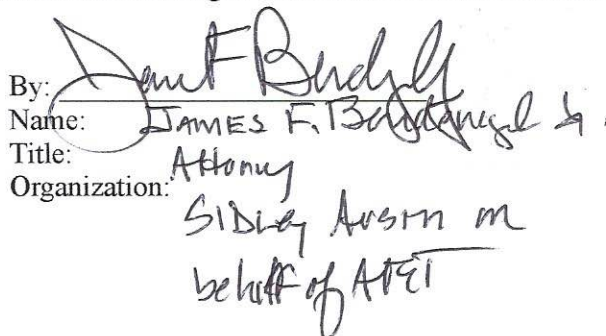 By:
Name: JAMES F.
Title: Attorney
Organization:
SIDLEY AUSTIN on
behalf of AT&T